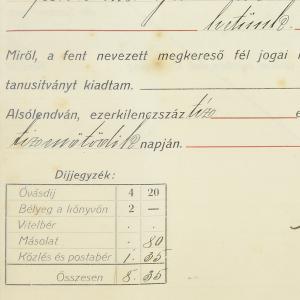 betünk.
Miről, a fent nevezett megkereső fél jogai
tanusitványt kiadtam.
Alsólendván, ezerkilenczszáz tiz
tizenötödik napján.
Díjjegyzék:
Óvásdíj 4 20
Bélyeg a könyvön 2 —
Vitelbér . .
Másolat . 80
Közlés és postabér 1. 35
Összesen 8. 35